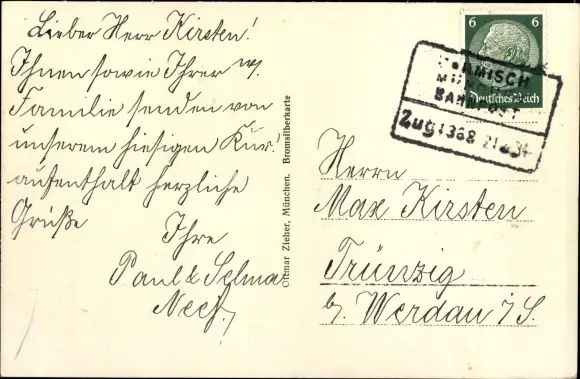 Lieber Herr Kirsten!
Ihnen sowie Ihrer w.
Familie senden von
unserem hiesigen Kur-
aufenthalt herzliche
Grüße
Ihre
Paul & Selma
Ottmar Zieher, München. Bromsilberkarte
6 6
Deutsches Reich
BAHNPOST
Zug 1368
Herrn
Max Kirsten
Trünzig
b/ Werdau i/S.